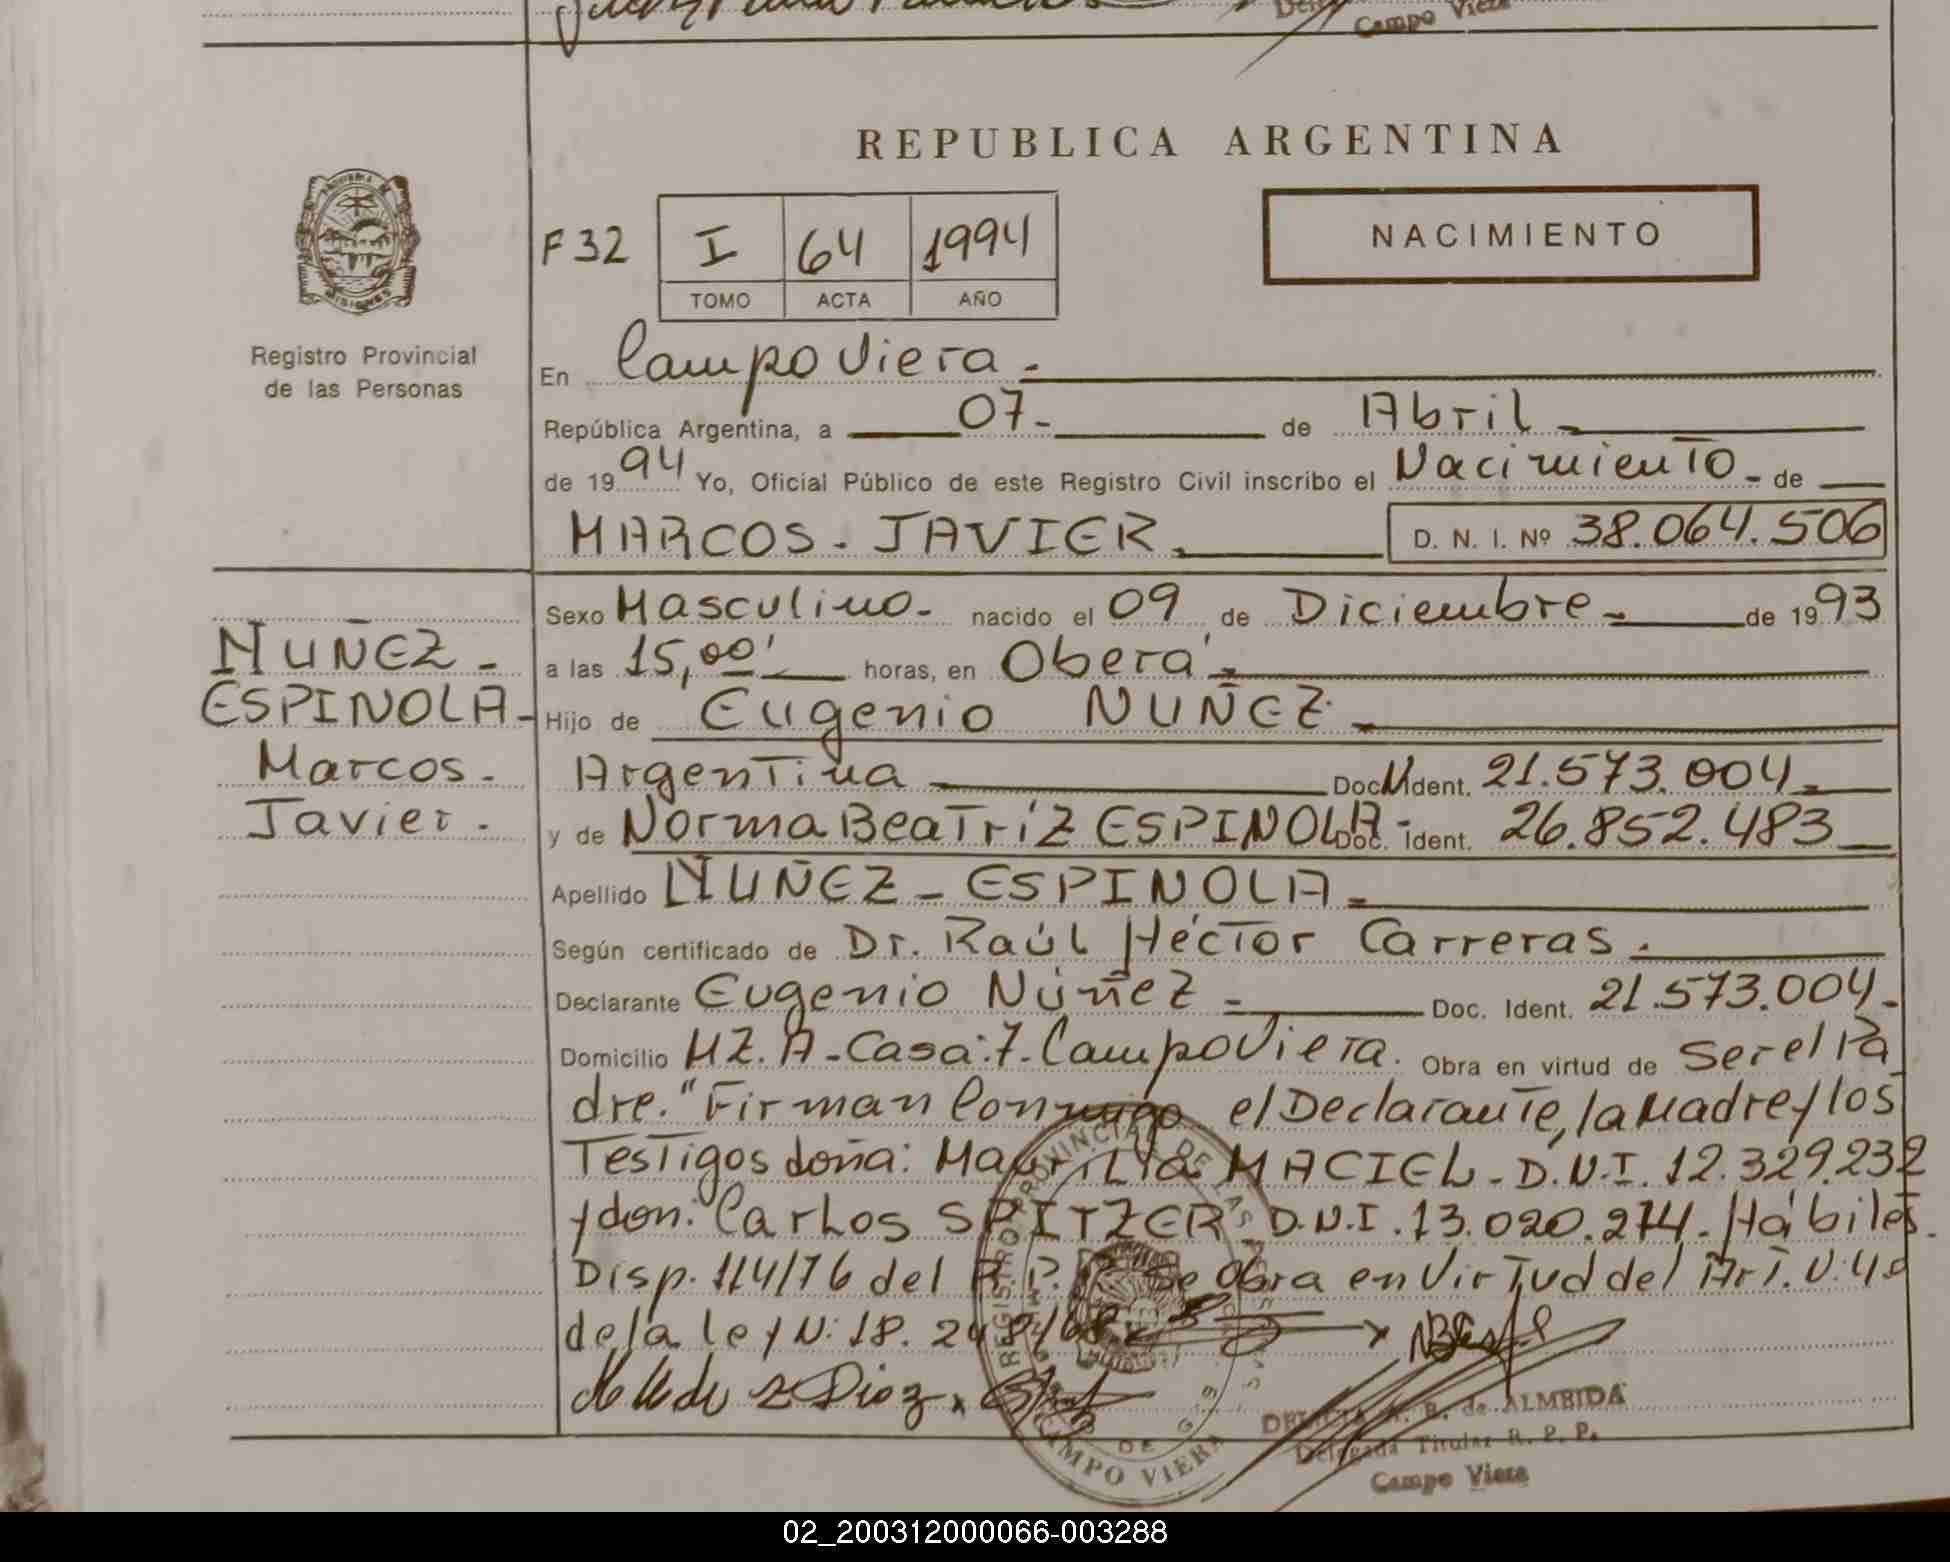 Campo Viera
REPUBLICA ARGENTINA
F 32
I 64 1994
TOMO ACTA AÑO
NACIMIENTO
MISIONES
Registro Provincial
de las Personas
En Campo Viera.-
República Argentina, a 07- de Abril-
de 1994 Yo, Oficial Público de este Registro Civil inscribo el Nacimiento- de
MARCOS-JAVIER- D. N. I. Nº 38.064.506
NUÑEZ-
ESPINOLA-
Marcos-
Javier.
Sexo Masculino- nacido el 09 de Diciembre- de 1993
a las 15,00' horas, en Oberá-
Hijo de Eugenio NUÑEZ-
Argentina Doc. Ident. 21.573.004-
y de Norma Beatríz ESPINOLA- Doc. Ident. 26.852.483
Apellido NUÑEZ-ESPINOLA-
Según certificado de Dr. Raúl Héctor Carreras.
Declarante Eugenio Núñez- Doc. Ident. 21.573.004-
Domicilio MZ. A-Casa:7-Campo Viera. Obra en virtud de Ser el Pa
dre." Firman Conmigo el Declarante, la Madre y los
Testigos doña: Maurilia MACIEL-D.N.I. 12.329.232
y don: Carlos SPITZER D.N.I. 13.020.274. Hábiles.
Disp. 114/76 del R.P.P. Se Obra en Virtud del Art. N:4º
de la ley N: 18.248/68
REGISTRO PROVINCIAL DE LAS PERSONAS
CAMPO VIERA
A. B. de ALMEIDA
Delegada Titular R. P. P.
Campo Viera
02_200312000066-003288